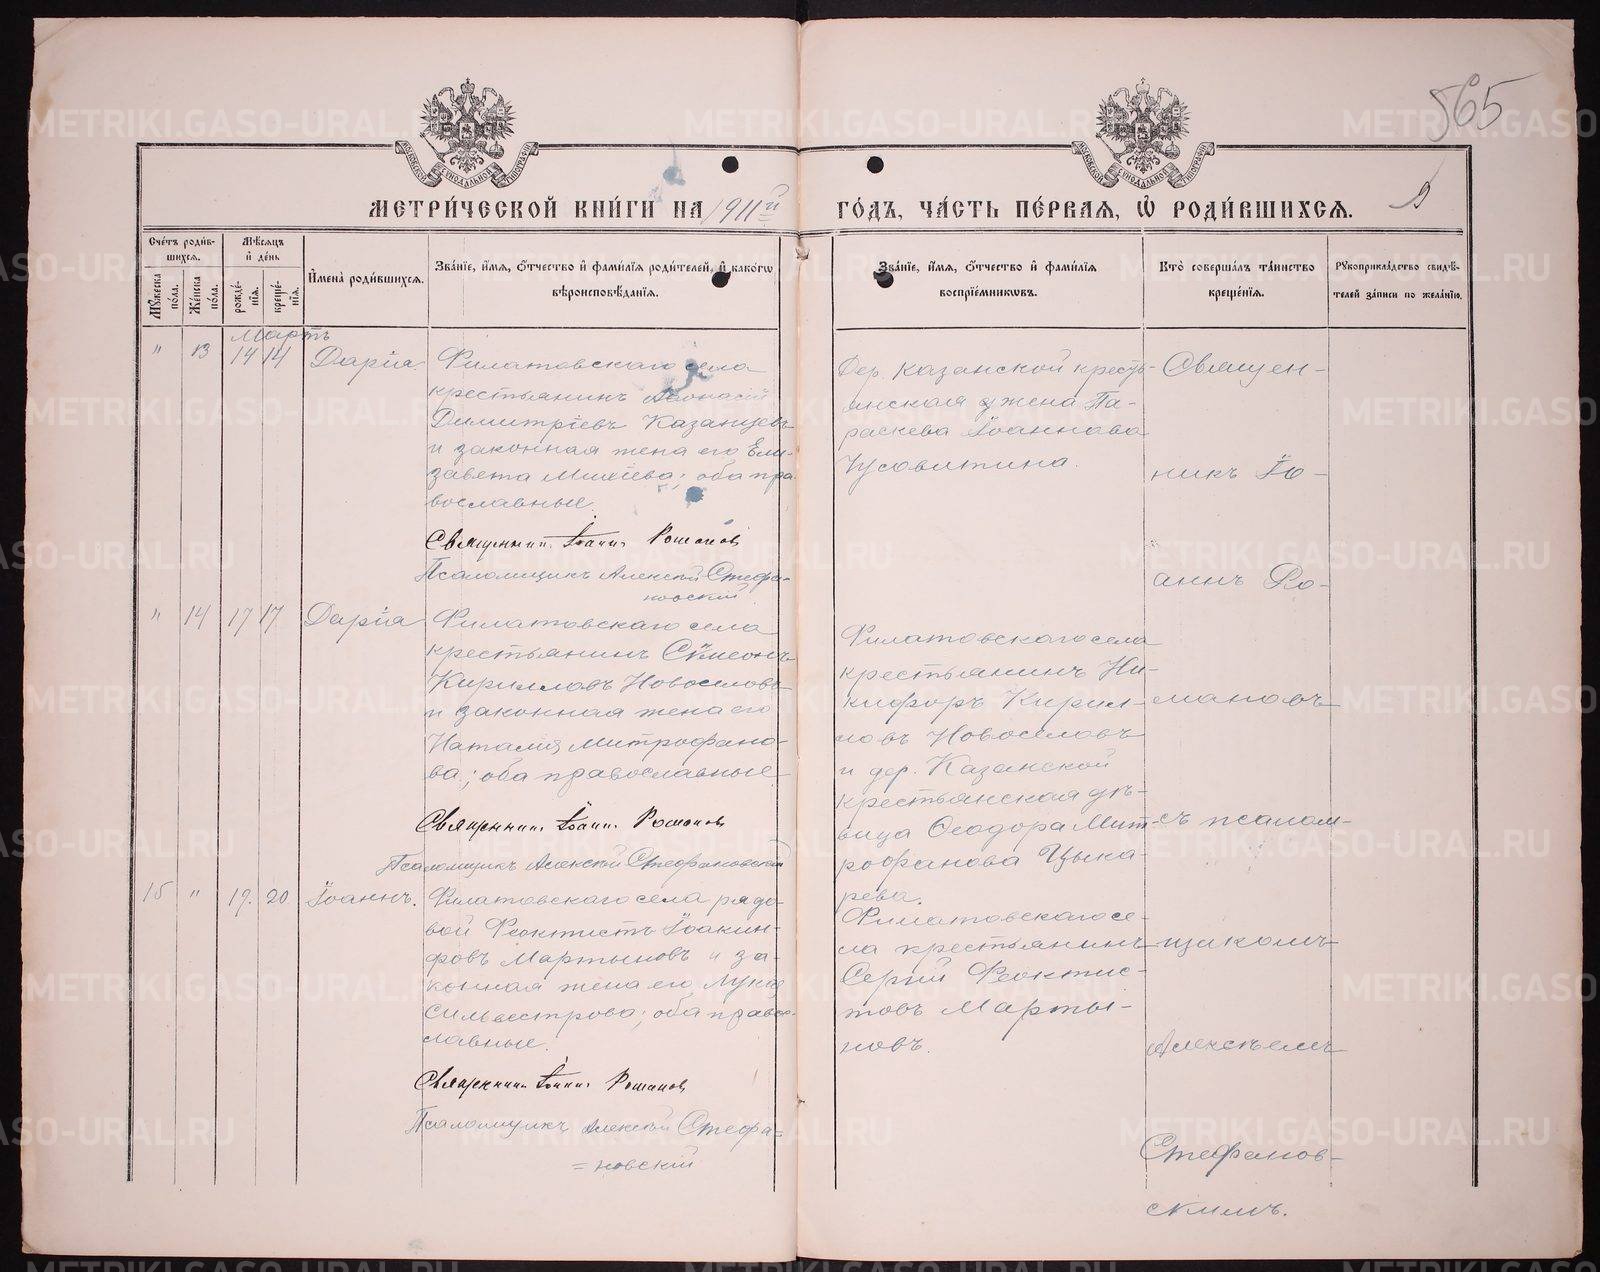 565
МЕТРИ́ЧЕСКОЙ КНИ́ГИ НА 1911й ГО́ДЪ, ЧА́СТЬ ПЕ́РВАЯ, Ѡ҆ РОДИ́ВШИХСѦ.
Сче́тъ роди́вшихся.
Мѣ́сяцъ и҆ де́нь
Мꙋ́жеска по́ла.
Же́нска по́ла.
рожде́нїѧ.
креще́нїѧ.
И҆мена̀ роди́вшихсѧ.
Зва́нїе, и҆́мѧ, ѻ҆́тчество и҆ фами́лїѧ роди́телей, и҆ како́гѡ вѣроисповѣ́данїѧ.
Зва́нїе, и҆́мѧ, ѻ҆́тчество и҆ фами́лїѧ воспрїе́мникѡвъ.
Кто̀ соверша́лъ та́инство креще́нїѧ.
Рꙋкоприкла́дство свидѣ́телей за́писи по жела́нїю.
Мартъ
" 13 14 14 Дарія.
Филатовскаго села
крестьянинъ Аѳонасій
Димитріевъ Казанцевъ
и законная жена его Ели-
завета Михеева; оба пра-
вославные.
Священник Іоанн Романов
Псаломщикъ Алексій Стефа-
новскій
Дер. Казанской кресть-
янская жена Па-
раскева Іоаннова
Усовитина.
" 14 17 17 Дарія
Филатовскаго села
крестьянинъ Сѵмеонъ
Кирилловъ Новоселовъ
и законная жена его
Наталия Митрофано-
ва; оба православные
Священник Іоанн Романов
Псаломщикъ Алексій Стефановскій
Филатовскаго села
крестьянинъ Ни-
кифоръ Кирил-
ловъ Новоселовъ
и дер. Казанской
крестьянская дѣ-
вица Ѳеодора Мит-
рофанова Цыка-
рева.
15 " 19. 20 Іоаннъ.
Филатовскаго села рядо-
вой Феоктистъ Іоакин-
фовъ Мартыновъ и за-
конная жена его Лукия
Силвестрова; оба право-
славные.
Священник Іоанн Романов
Псаломщикъ Алексій Стефа-
=новскій
Филатовскаго се-
ла крестьянинъ
Сергій Феоктис-
товъ Марты-
новъ.
Священ-
никъ Іо-
аннъ Ро-
мановъ
съ псалом-
щикомъ
Алексѣемъ
Стефанов-
скимъ.
METRIKI.GASO-URAL.RU